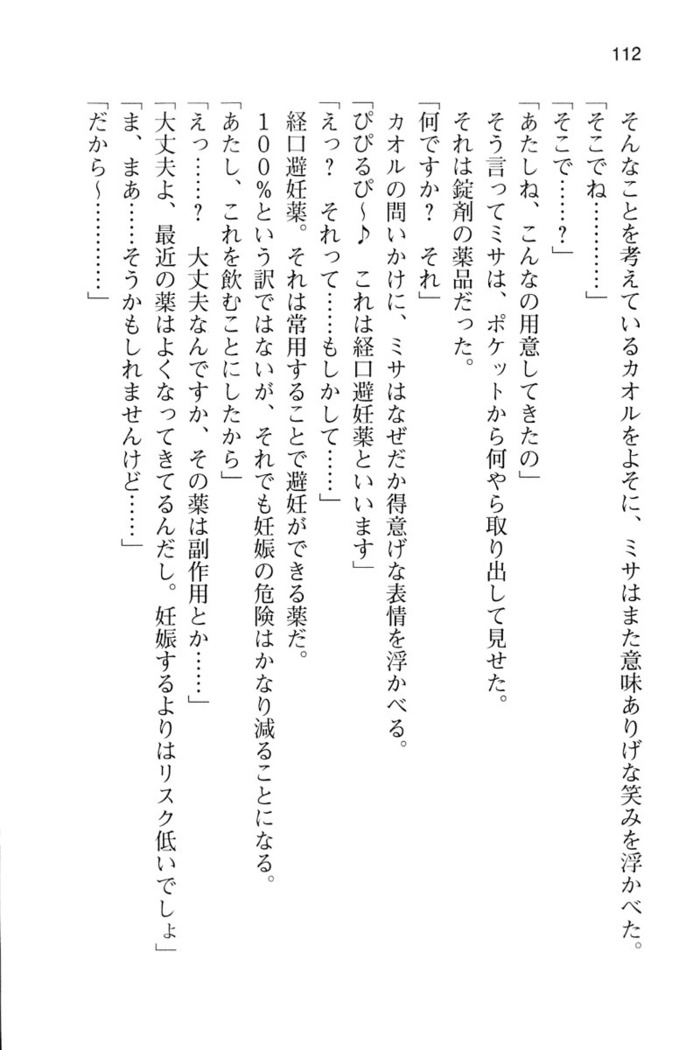 112
そんなことを考えているカオルをよそに、ミサはまた意味ありげな笑みを浮かべた。
「そこでね…………」
「そこで……？」
「あたしね、こんなの用意してきたの」
そう言ってミサは、ポケットから何やら取り出して見せた。
それは錠剤の薬品だった。
「何ですか？　それ」
カオルの問いかけに、ミサはなぜだか得意げな表情を浮かべる。
「ぴぴるぴ〜♪　これは経口避妊薬といいます」
「えっ？　それって……もしかして……」
経口避妊薬。それは常用することで避妊ができる薬だ。
100％という訳ではないが、それでも妊娠の危険はかなり減ることになる。
「あたし、これを飲むことにしたから」
「えっ……？　大丈夫なんですか、その薬は副作用とか……」
「大丈夫よ、最近の薬はよくなってきてるんだし。妊娠するよりはリスク低いでしょ」
「ま、まあ……そうかもしれませんけど……」
「だから〜…………」